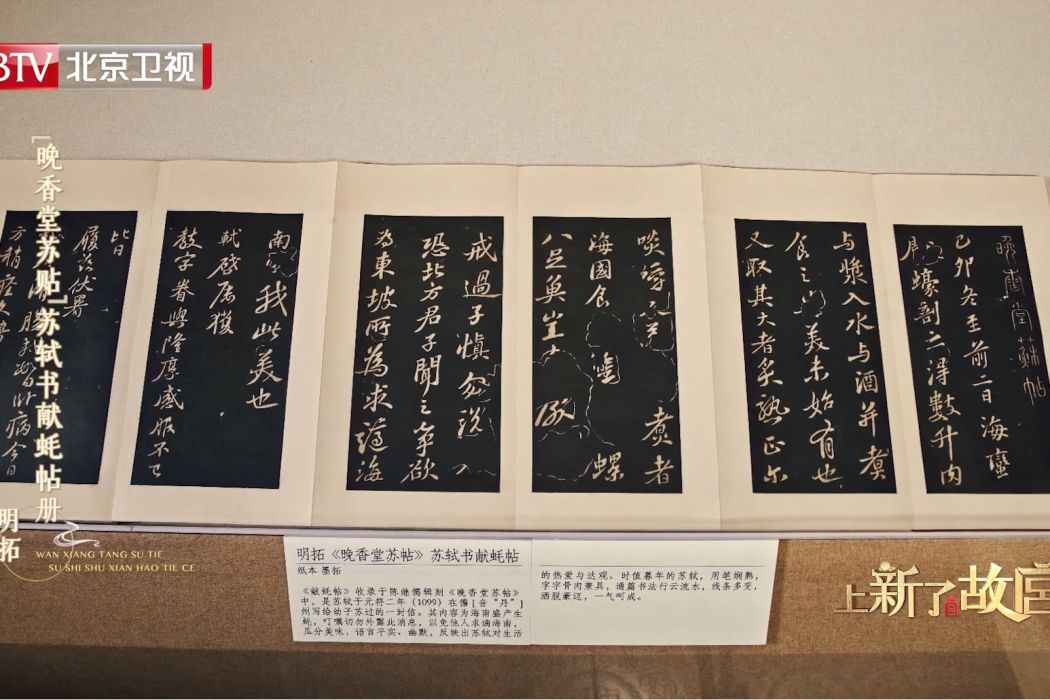 BTV 北京卫视
「晚香堂苏贴」苏轼书献蚝帖册
明拓
WAN XIANG TANG SU TIE
SU SHI SHU XIAN HAO TIE CE
晚香堂蘇帖
己卯冬至前二日海蠻
蠔剖之得數升肉
与漿入水与酒并煑
食之美未始有也
又取其大者炙熟正尔
啖 煑者
海國食 螺
八足魚豈
戒過子慎勿説
恐北方君子聞之爭欲
為東坡所為求謫海
南 我此美也
軾啓屢獲
教字眷與隆厚感服不已
比日
伏暑
病今日
明拓《晚香堂苏帖》苏轼书献蚝帖
纸本 墨拓
《献蚝帖》收录于陈继儒辑刻《晚香堂苏帖》
中，是苏轼于元符二年（1099）在儋[音“丹”]
州写给幼子苏过的一封信。其内容为海南盛产生
蚝，叮嘱切勿外露此消息，以免他人求谪海南，
瓜分美味，语言平实、幽默，反映出苏轼对生活
的热爱与达观。时值暮年的苏轼，用笔娴熟，
字字骨肉兼具，通篇书法行云流水，线条多变，
洒脱豪迈，一气呵成。
上新了故宫